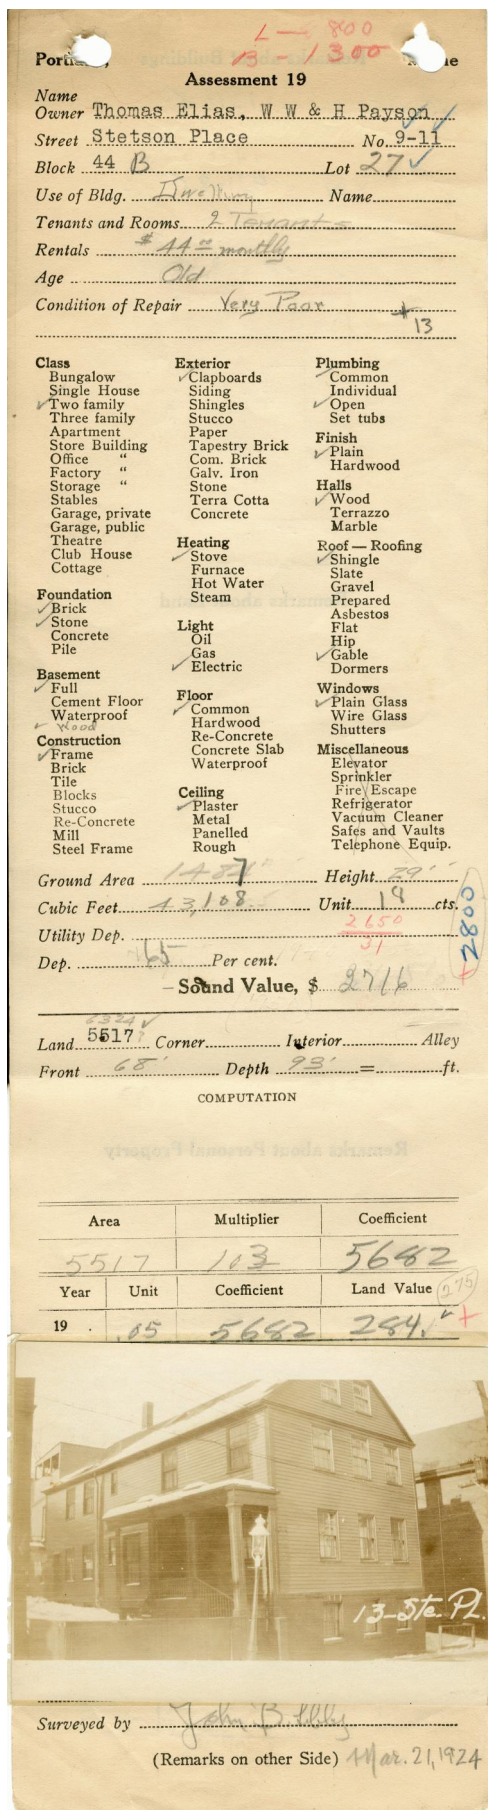 L - 800
B - 1300
Assessment 19
Name
Owner Thomas Elias, W W & H Payson
Street Stetson Place No. 9-11
Block 44 B Lot 27
Use of Bldg. Dwelling Name
Tenants and Rooms 2 Tenants
Rentals $44.00 monthly
Age Old
Condition of Repair Very Poor
+ 13
Class
Bungalow
Single House
✓ Two family
Three family
Apartment
Store Building
Office "
Factory "
Storage "
Stables
Garage, private
Garage, public
Theatre
Club House
Cottage
Foundation
✓ Brick
✓ Stone
Concrete
Pile
Basement
✓ Full
Cement Floor
Waterproof
✓ Wood
Construction
✓ Frame
Brick
Tile
Blocks
Stucco
Re-Concrete
Mill
Steel Frame
Exterior
✓ Clapboards
Siding
Shingles
Stucco
Paper
Tapestry Brick
Com. Brick
Galv. Iron
Stone
Terra Cotta
Concrete
Heating
✓ Stove
Furnace
Hot Water
Steam
Light
Oil
✓ Gas
✓ Electric
Floor
✓ Common
Hardwood
Re-Concrete
Concrete Slab
Waterproof
Ceiling
✓ Plaster
Metal
Panelled
Rough
Plumbing
✓ Common
Individual
✓ Open
Set tubs
Finish
✓ Plain
Hardwood
Halls
✓ Wood
Terrazzo
Marble
Roof — Roofing
✓ Shingle
Slate
Gravel
Prepared
Asbestos
Flat
Hip
✓ Gable
Dormers
Windows
✓ Plain Glass
Wire Glass
Shutters
Miscellaneous
Elevator
Sprinkler
Fire Escape
Refrigerator
Vacuum Cleaner
Safes and Vaults
Telephone Equip.
Ground Area Height 29'
Cubic Feet 43,108 Unit 18 cts.
2650
31
+2800
Utility Dep.
Dep. 65 Per cent.
Sound Value, $ 2716
6324 ✓
Land 5517 Corner Interior Alley
Front 68' Depth 93' = ft.
COMPUTATION
Area Multiplier Coefficient
5517 103 5682
Year Unit Coefficient Land Value 275
19 . .05 5682 284. ✓ +
13-Ste. Pl.
Surveyed by John B. Libby
(Remarks on other Side) Mar. 21, 1924